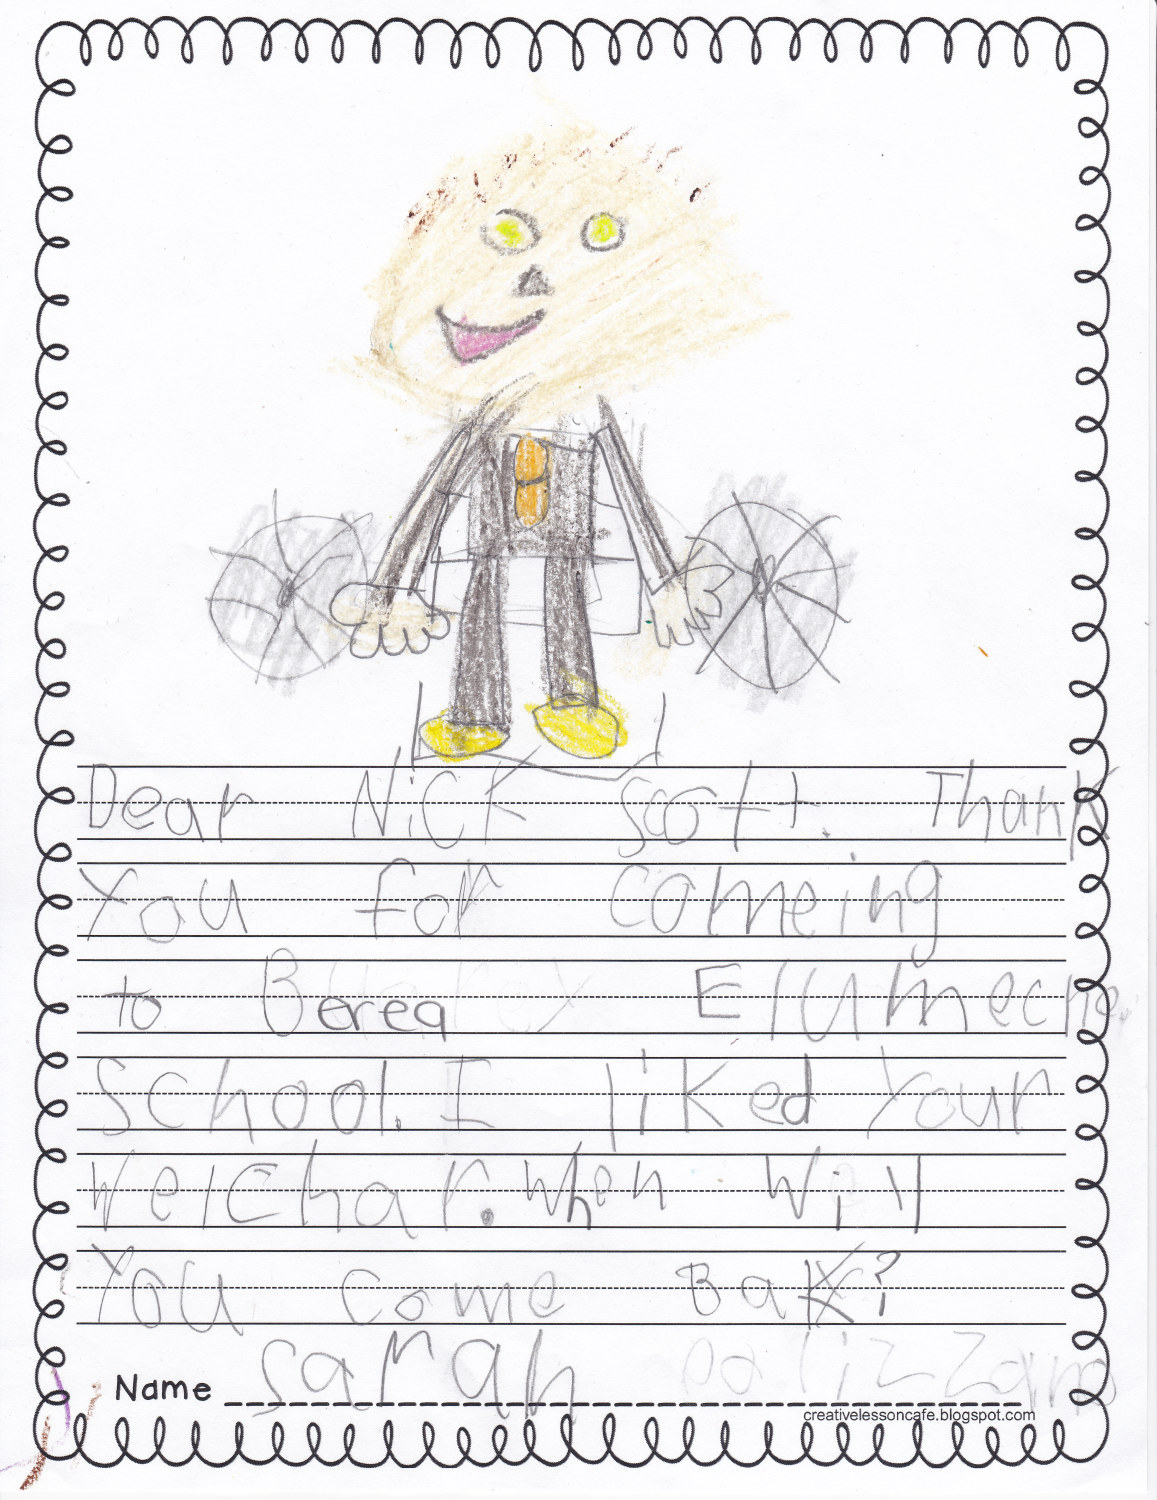 Dear Nick Scott. Thank
You for comeing
to Berea Elumeche
School. I liked Your
Welchar. When Will
You come Bak?
Name Sarah
creativelessoncafe.blogspot.com